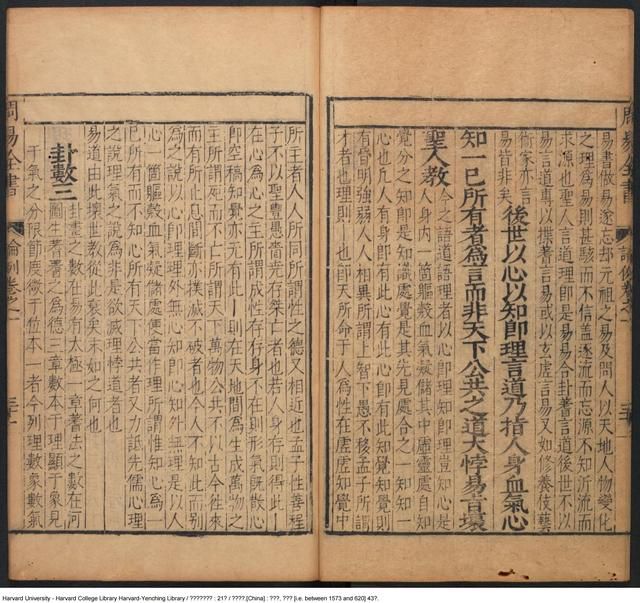 周易全書
論例卷之一
易書做易遂忘却元祖之易及問人以天地人物變化
之理為易則甚駭而不信蓋逐流而忘源不知沂流而
求源也聖人言道理即是易易今卦蓍言道後世不以
易言道專以揲蓍言易或以玄虛言易又如修養伎藝
術家亦言
易皆非矣
後世以心以知即理言道乃指人身血氣心
知一己所有者為言而非天下公共之道大悖易旨壞
聖人教
今之語道語理者以心即理知即理豈知心是
人身内一箇軀殼血氣疑儲其中虛靈處自知
覺分之知即是知識處覺是其先見處合之一知知一
心也凡人有身即有此心有此心即有此知覺知覺則
有昏明強弱人人相異所謂上智下愚不移孟子所謂
才者也理則一即天所命于人為性在虛虛知覺中
所主者人人所同所謂性之德又相近也孟子性善程
子不以聖豐愚嗇堯存桀亡者也若人身存則得此一
在心為心之主所謂成性存存身不在則形氣既散心
即空稿知覺亦无有此一則在天地間為生成萬物之
主所謂死而不亡所謂天下萬物公共不以古今往來
而有所止息間斷亦撲滅不破者也今人不知此而别
為之說以心即理理外無心知即心知外無理是以人
心一箇軀殼血氣疑儲處便當作理所謂惟知心為一
已所有而不知心所有天下公共者又力詆先儒心理
之說理氣之說為非是欲滅理悖道者也
易道由此壞世教從此衰矣未如之何也
卦數三
卦畫之數在易有太極一章蓍法之數在河
圖生蓍蓍之為德三章數本于理顯于象見
于氣之分限節度微于位本一者今列理數象數氣
周易全書
論例卷之一
三十一
Harvard University - Harvard College Library Harvard-Yenching Library / ??????? : 21? / ????.[China] : ???, ??? [i.e. between 1573 and 620] 43?.